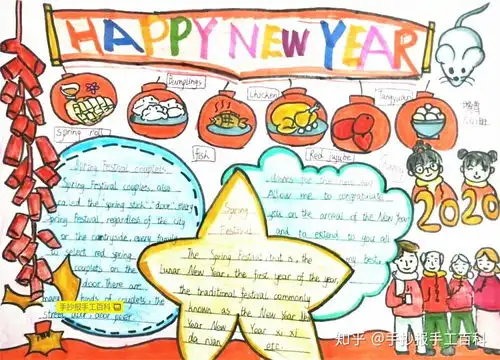 HAPPY NEW YEAR
Dumplings
Chicken
Tangyuan
spring roll
fish
Red jujube
Spring Festival couplets
Spring Festival couplets also
called the spring stick, door, every
spring Festival, regardless of the city
or the countryside, every family
to select red spring
couplets on the
door. There are
many kinds of couplets, the
Spring
Festival
The Spring Festival, that is, the
lunar New Year, the first year of the year,
the traditional festival commonly
known as the New Year
Year New Year xi xi
da nian etc.
Allow me to congratulate
you on the arrival of the New Year
and to extend to you all
my best
2020
手抄报手工百科
知乎 @手抄报手工百科